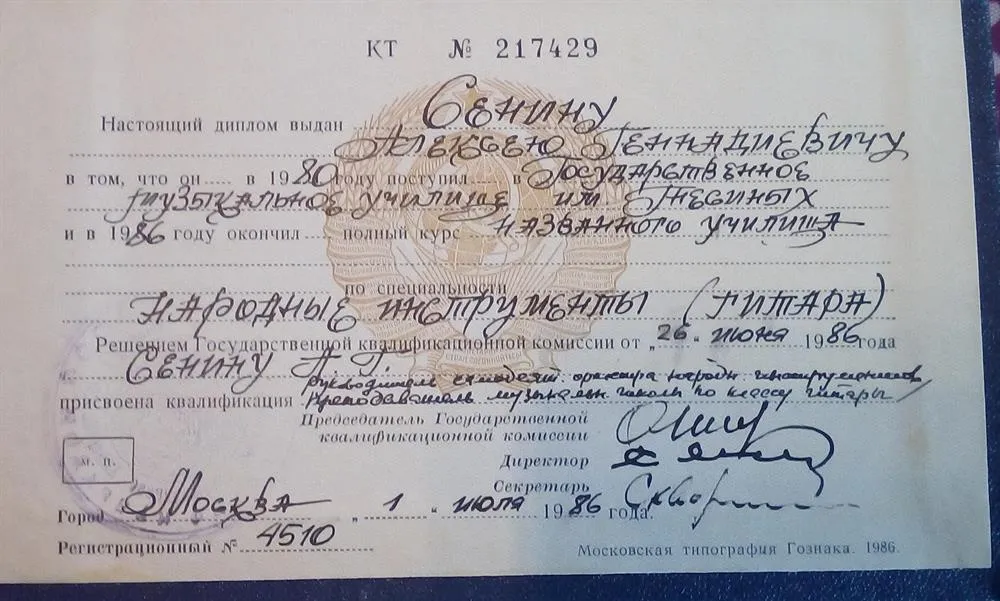 КТ № 217429
Настоящий диплом выдан Сенину
Алексею Геннадиевичу
в том, что он в 1980 году поступил в Государственное
музыкальное училище им. Гнесиных
и в 1986 году окончил полный курс названного училища
по специальности
народные инструменты (гитара)
Решением Государственной квалификационной комиссии от „26“ июня 1986 года
Сенину А. Г.
руководитель самодеят. оркестра народн. инструментов,
присвоена квалификация преподаватель музыкальн. школы по классу гитары
Председатель Государственной
квалификационной комиссии
Директор
м. п.
Секретарь
Город Москва „1“ июля 1986 года.
Регистрационный № 4510
Московская типография Гознака. 1986.